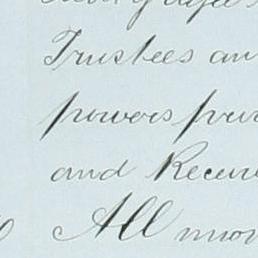 Trustees an
powers priv
and Receiv
All mon